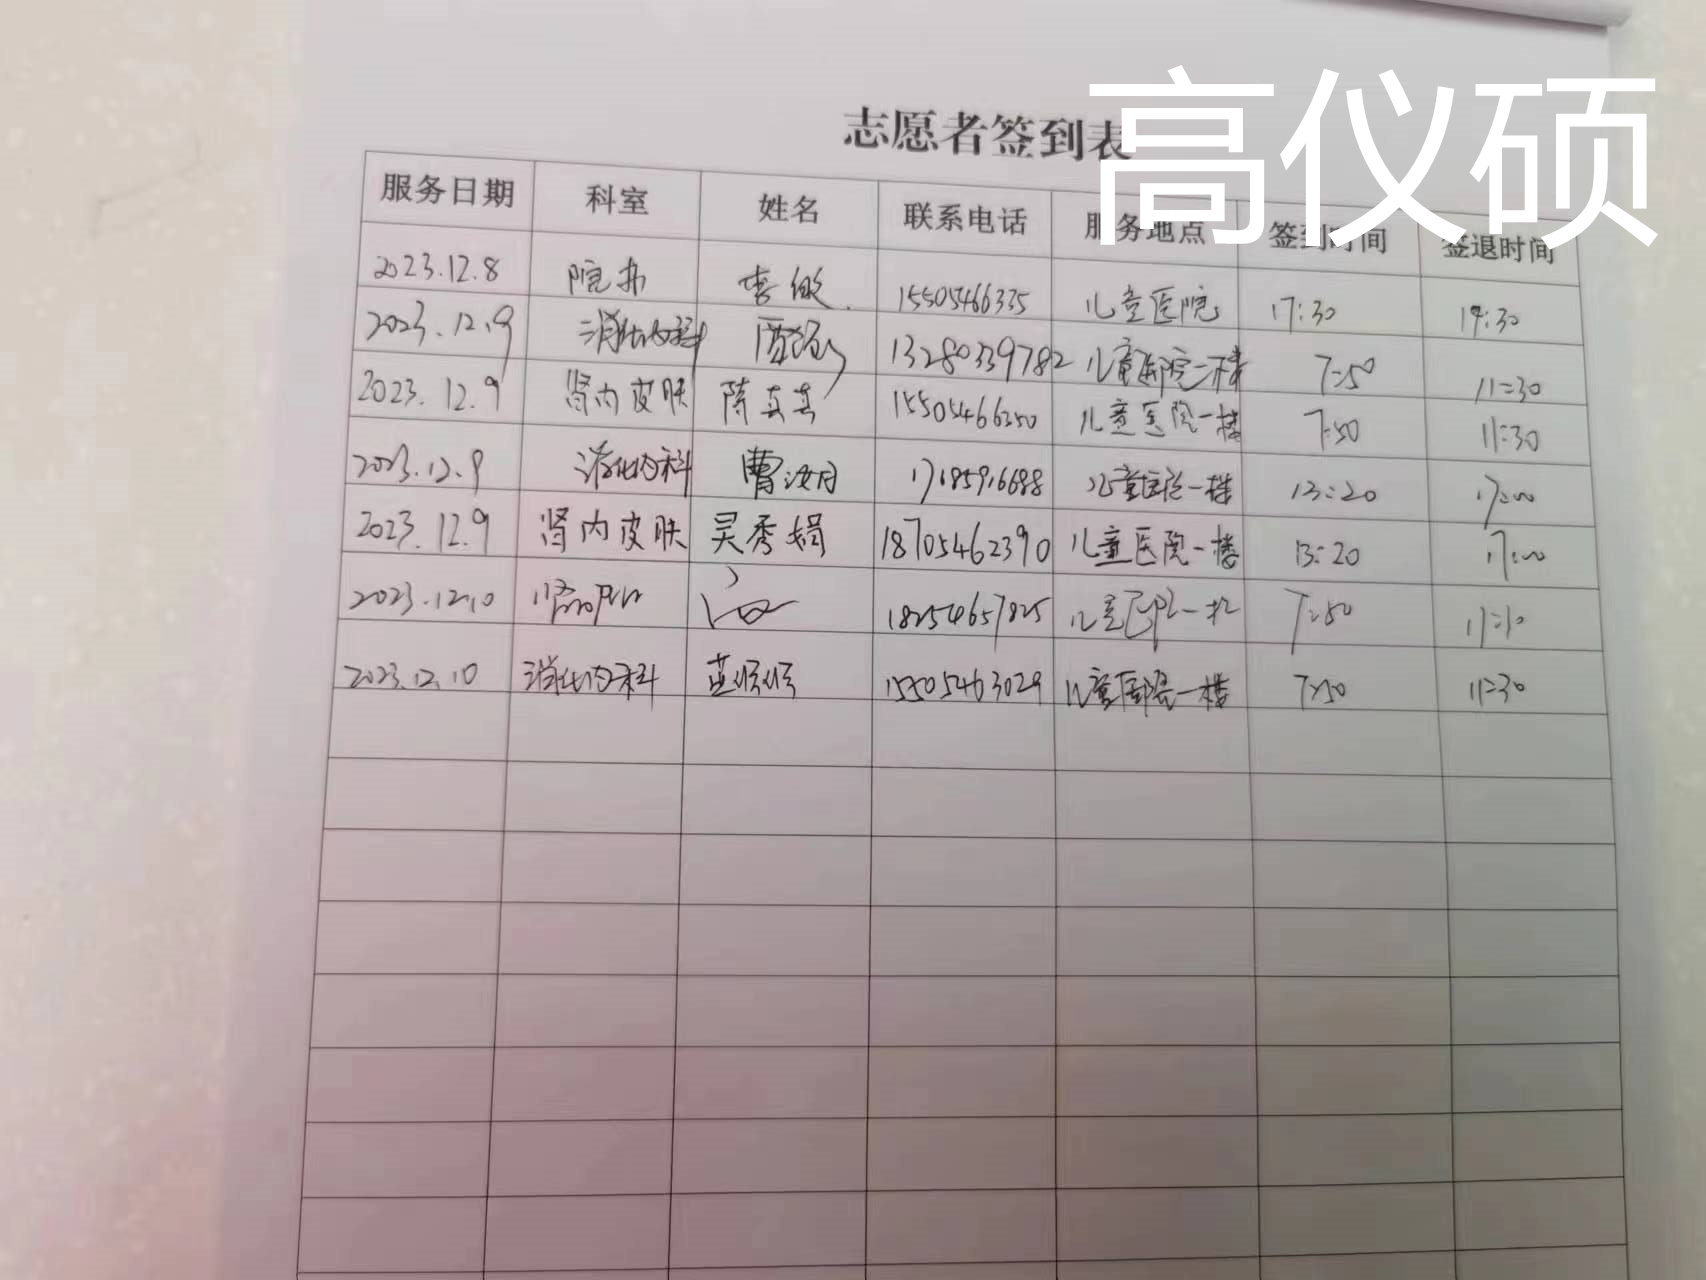 高仪硕
志愿者签到表
服务日期 科室 姓名 联系电话 服务地点 签到时间 签退时间
2023.12.8 院办 李敏 15505466335 儿童医院 17:30 19:30
2023.12.9 消化内科 13280339782 儿童医院一楼 7:50 11:30
2023.12.9 肾内皮肤 陈真真 15505466350 儿童医院一楼 7:50 11:30
2023.12.9 消化内科 曹汝月 儿童医院一楼 13:20 17:00
2023.12.9 肾内皮肤 吴秀娟 18705462390 儿童医院一楼 13:20 17:00
2023.12.10 18254657825 7:50
2023.12.10 消化内科 15505463029 儿童医院一楼 7:50 11:30